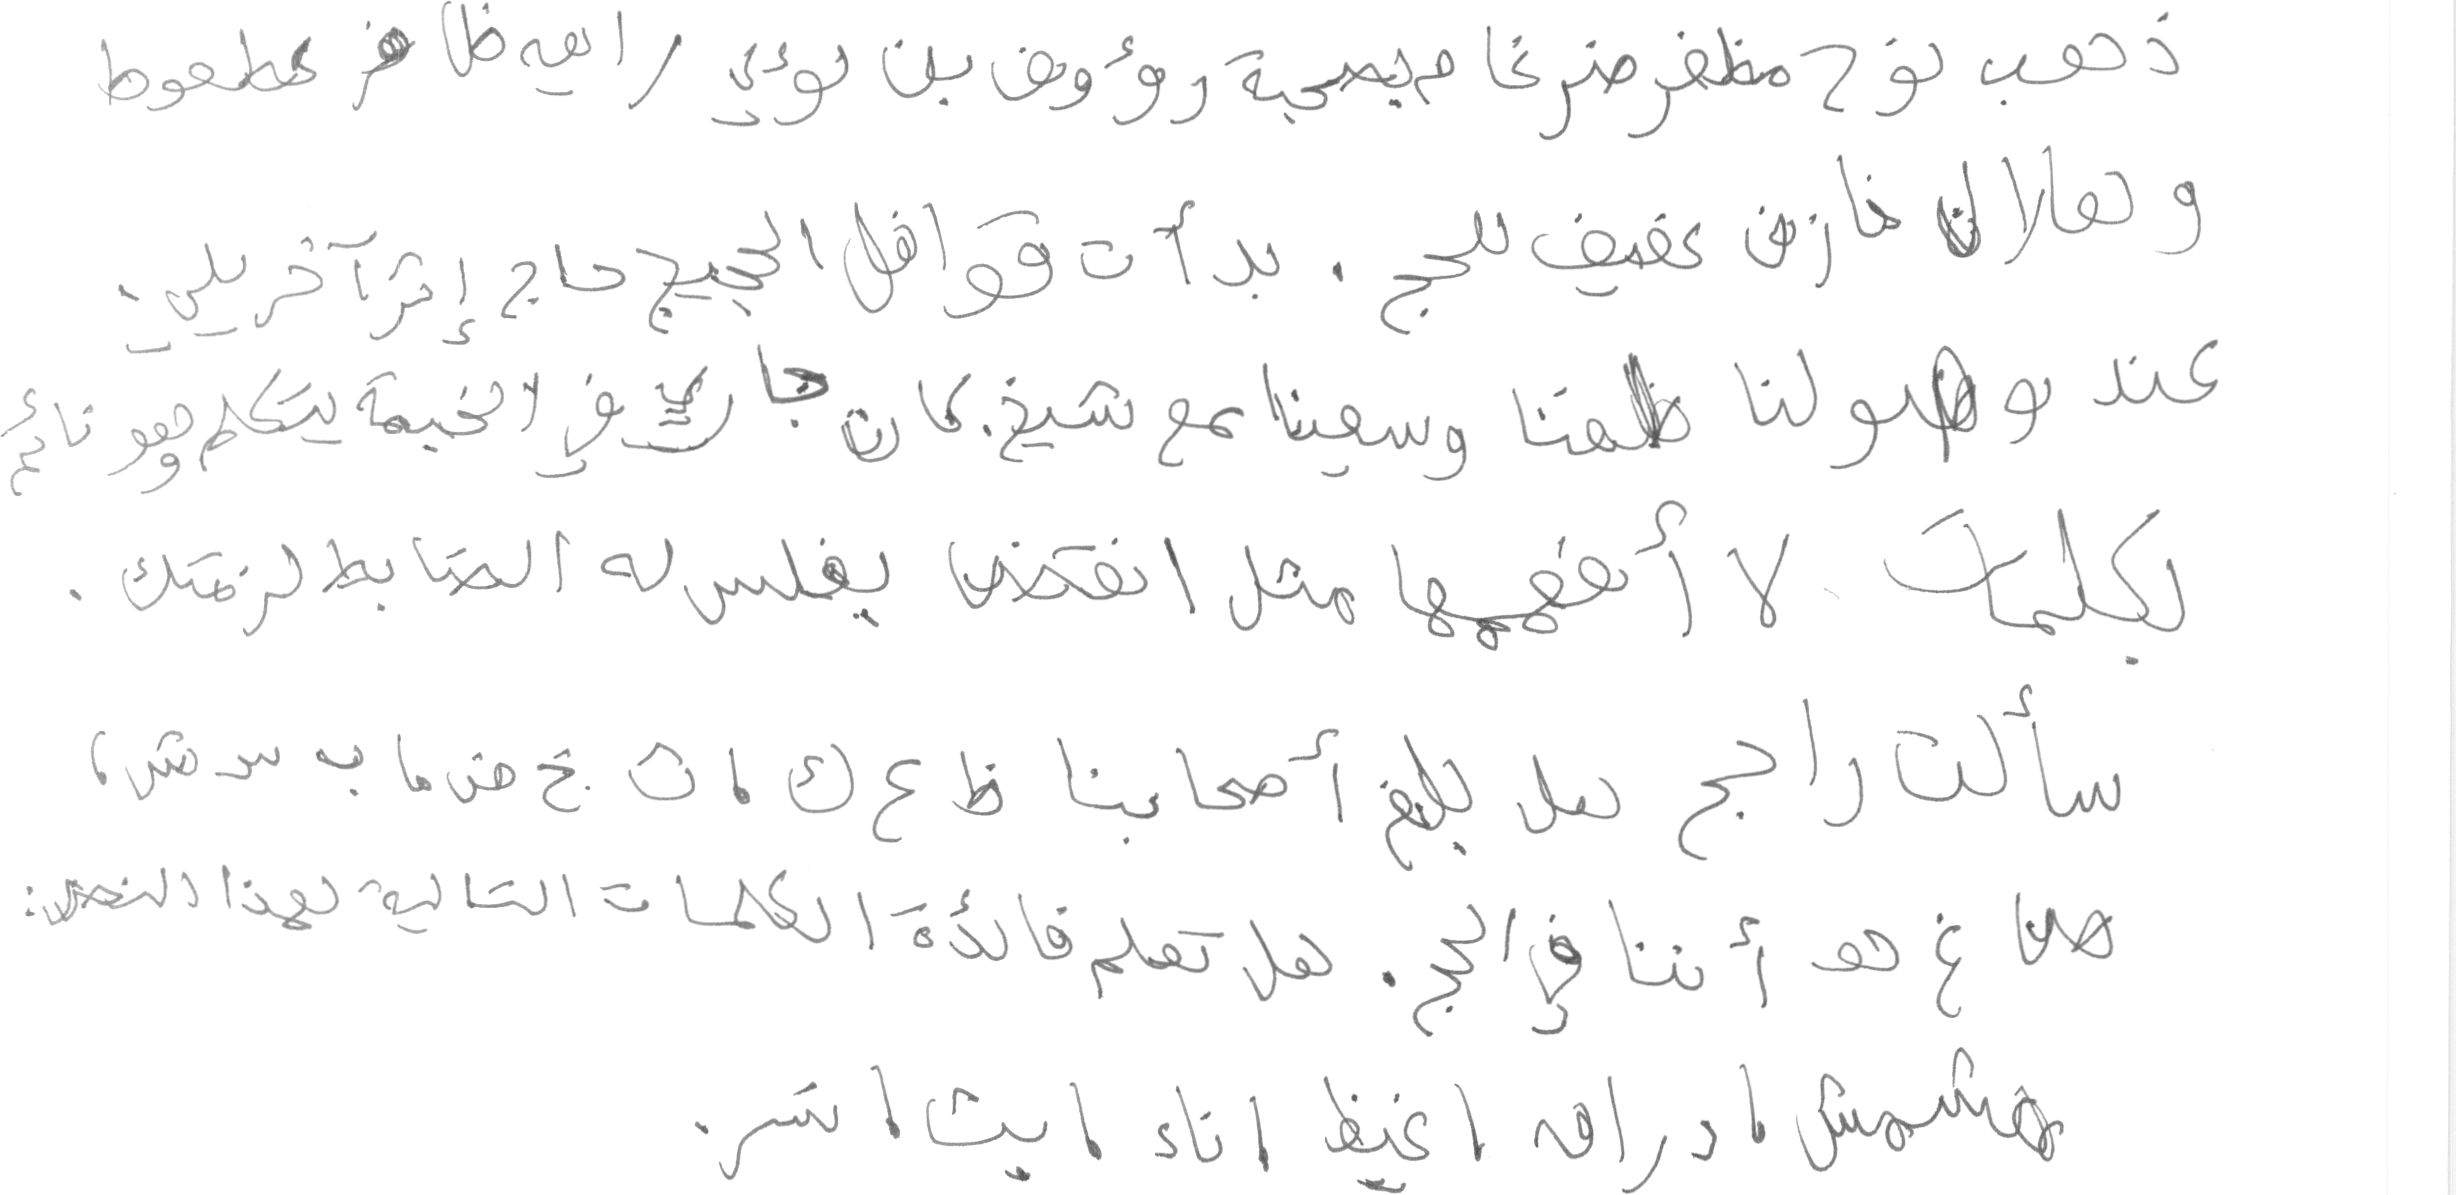 ذهب نوح مظفر ضرغام بصحبة رؤوف بن لؤي راعه ظافر عطعوط
و هلال خازن عفيف للحج . بدأت قوافل الحجيج حاج إثر آخر يلبي .
عند وصولنا طفنا وسعينا مع شيخ . كان جارك في الخيمة يتكلم وهو نائم
بكلمات لا أفهمها مثل يفلس له الضابط لزمتك .
سألت راجح هل بلغ أصحابنا ظ ع ك ا ث خ ض ما ب س ش ا
صاغ هو أننا في الحج . هل تعلم فائدة الكلمات التالية لهذا النص :
هشمش ادراه اغيظ اناء ايث اشر .